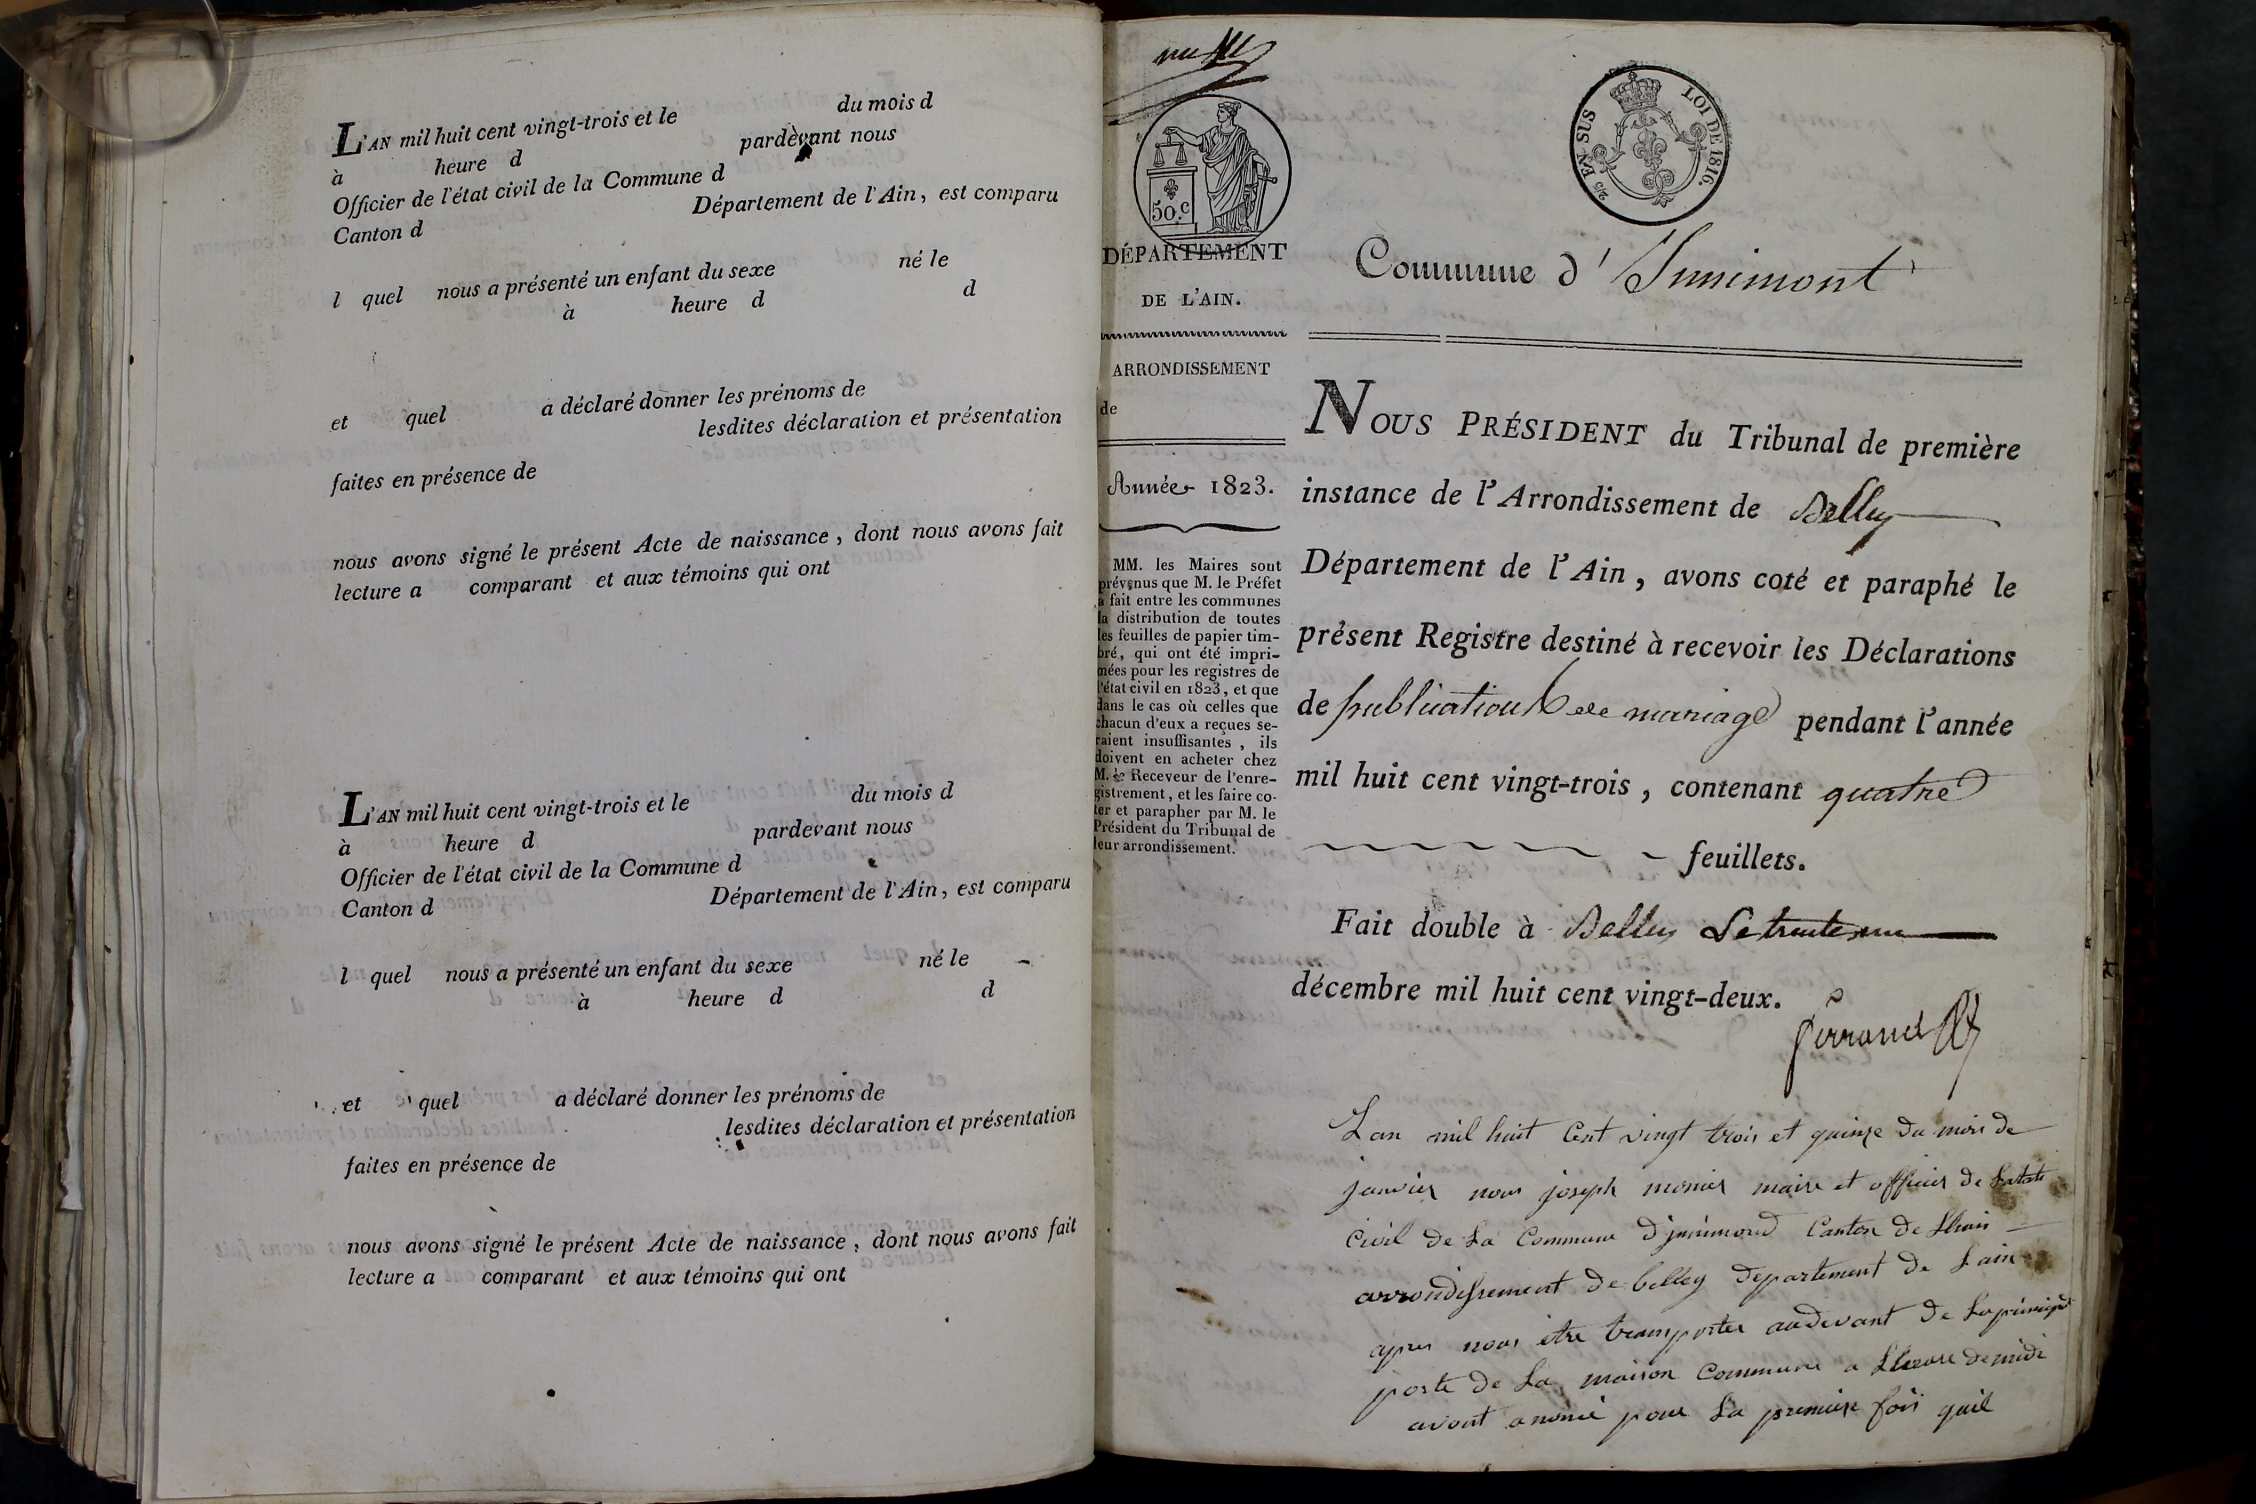 L'AN mil huit cent vingt-trois et le du mois d
à heure d pardevant nous
Officier de l'état civil de la Commune d
Canton d Département de l'Ain, est comparu
l quel nous a présenté un enfant du sexe né le
à heure d d
et quel a déclaré donner les prénoms de
lesdites déclaration et présentation
faites en présence de
nous avons signé le présent Acte de naissance, dont nous avons fait
lecture a comparant et aux témoins qui ont
L'AN mil huit cent vingt-trois et le du mois d
à heure d pardevant nous
Officier de l'état civil de la Commune d
Canton d Département de l'Ain, est comparu
l quel nous a présenté un enfant du sexe né le
à heure d d
et quel a déclaré donner les prénoms de
lesdites déclaration et présentation
faites en présence de
nous avons signé le présent Acte de naissance, dont nous avons fait
lecture a comparant et aux témoins qui ont
50.c
2/5 EN SUS LOI DE 1816.
DÉPARTEMENT
DE L'AIN.
ARRONDISSEMENT
de
Année 1823.
MM. les Maires sont
prévenus que M. le Préfet
a fait entre les communes
la distribution de toutes
les feuilles de papier tim-
bré, qui ont été impri-
mées pour les registres de
l'état civil en 1823, et que
dans le cas où celles que
chacun d'eux a reçues se-
raient insuffisantes, ils
doivent en acheter chez
M. le Receveur de l'enre-
gistrement, et les faire co-
ter et parapher par M. le
Président du Tribunal de
leur arrondissement.
Commune d'Innimont
NOUS PRÉSIDENT du Tribunal de première
instance de l'Arrondissement de Belley
Département de l'Ain, avons coté et paraphé le
présent Registre destiné à recevoir les Déclarations
de publications de mariage pendant l'année
mil huit cent vingt-trois, contenant quatre
feuillets.
Fait double à Belley Le trente un
décembre mil huit cent vingt-deux.
L'an mil huit Cent vingt trois et quinze du mois de
janvier nous joseph monier maire et officier de Latat
Civil de La Commune d'jnnimond Canton de Lhuis
arrondissement de belley departement de Lain
apres nous être transporter audevant de La principe
porte de La maison Commune a Lheure de midi
avont anoncé pour La premiere fois quil